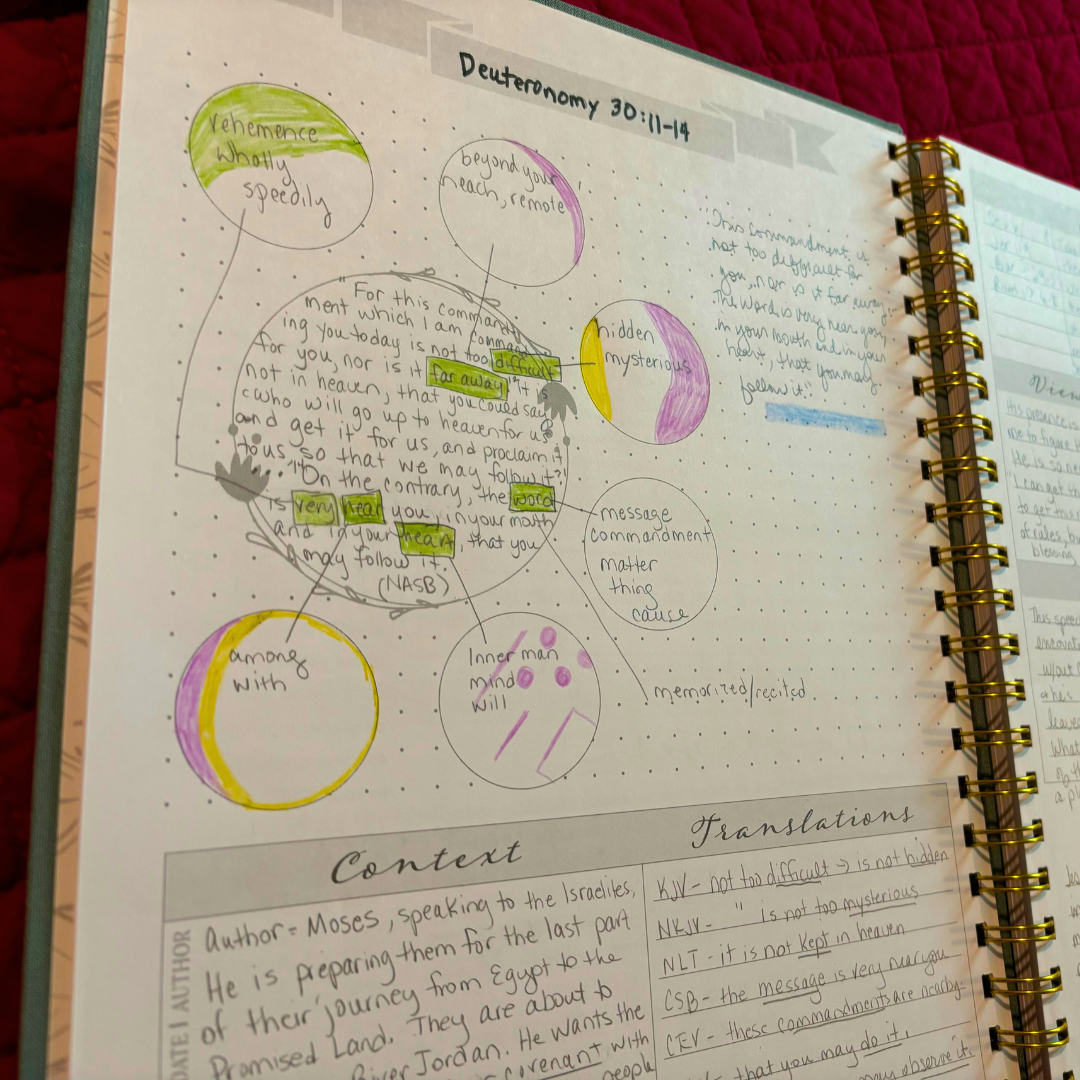 Deuteronomy 30:11-14
vehemence
wholly
speedily
beyond your
reach, remote
hidden
mysterious
"This commandment is
not too difficult for
you, nor is it far away.
The word is very near you,
in your mouth and in your
heart, that you may
follow it."
"For this command
ment which I am command
ing you today is not too difficult
for you, nor is it far away. 12 "It is
not in heaven, that you could say,
'who will go up to heaven for us
and get it for us, and proclaim it
to us, so that we may follow it?'
.... 14 "On the contrary, the word
is very near you, in your mouth
and in your heart, that you
may follow it.
(NASB)
message
commandment
matter
thing
cause
among
with
Inner man
mind
will
memorized/recited
Context
DATE | AUTHOR
Author = Moses, speaking to the Israelites,
He is preparing them for the last part
of their journey from Egypt to the
Promised Land. They are about to
River Jordan. He wants the
covenant with
people
Translations
KJV- not too difficult → is not hidden
NKJV- " is not too mysterious
NLT - it is not kept in heaven
CSB- the message is very near you
CEV- these commandments are nearby
that you may do it.
may observe it.
View
His presence is
me to figure
He is so ne
I can get th
to get this
of rules, bu
blessing
This spee
encount
w/out
leave
What